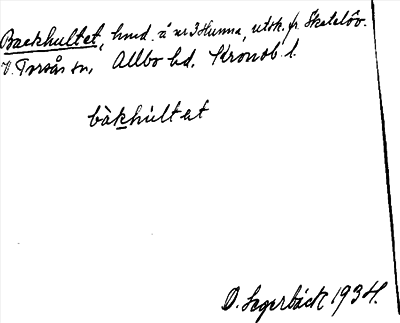 Backhultet, hmd. å nr 3 Hunna, utsk. fr. Skatelöv.
V. Torsås sn, Allbo hd, Kronob. l.
bàkhúltat
D. Segerbäck 1934.